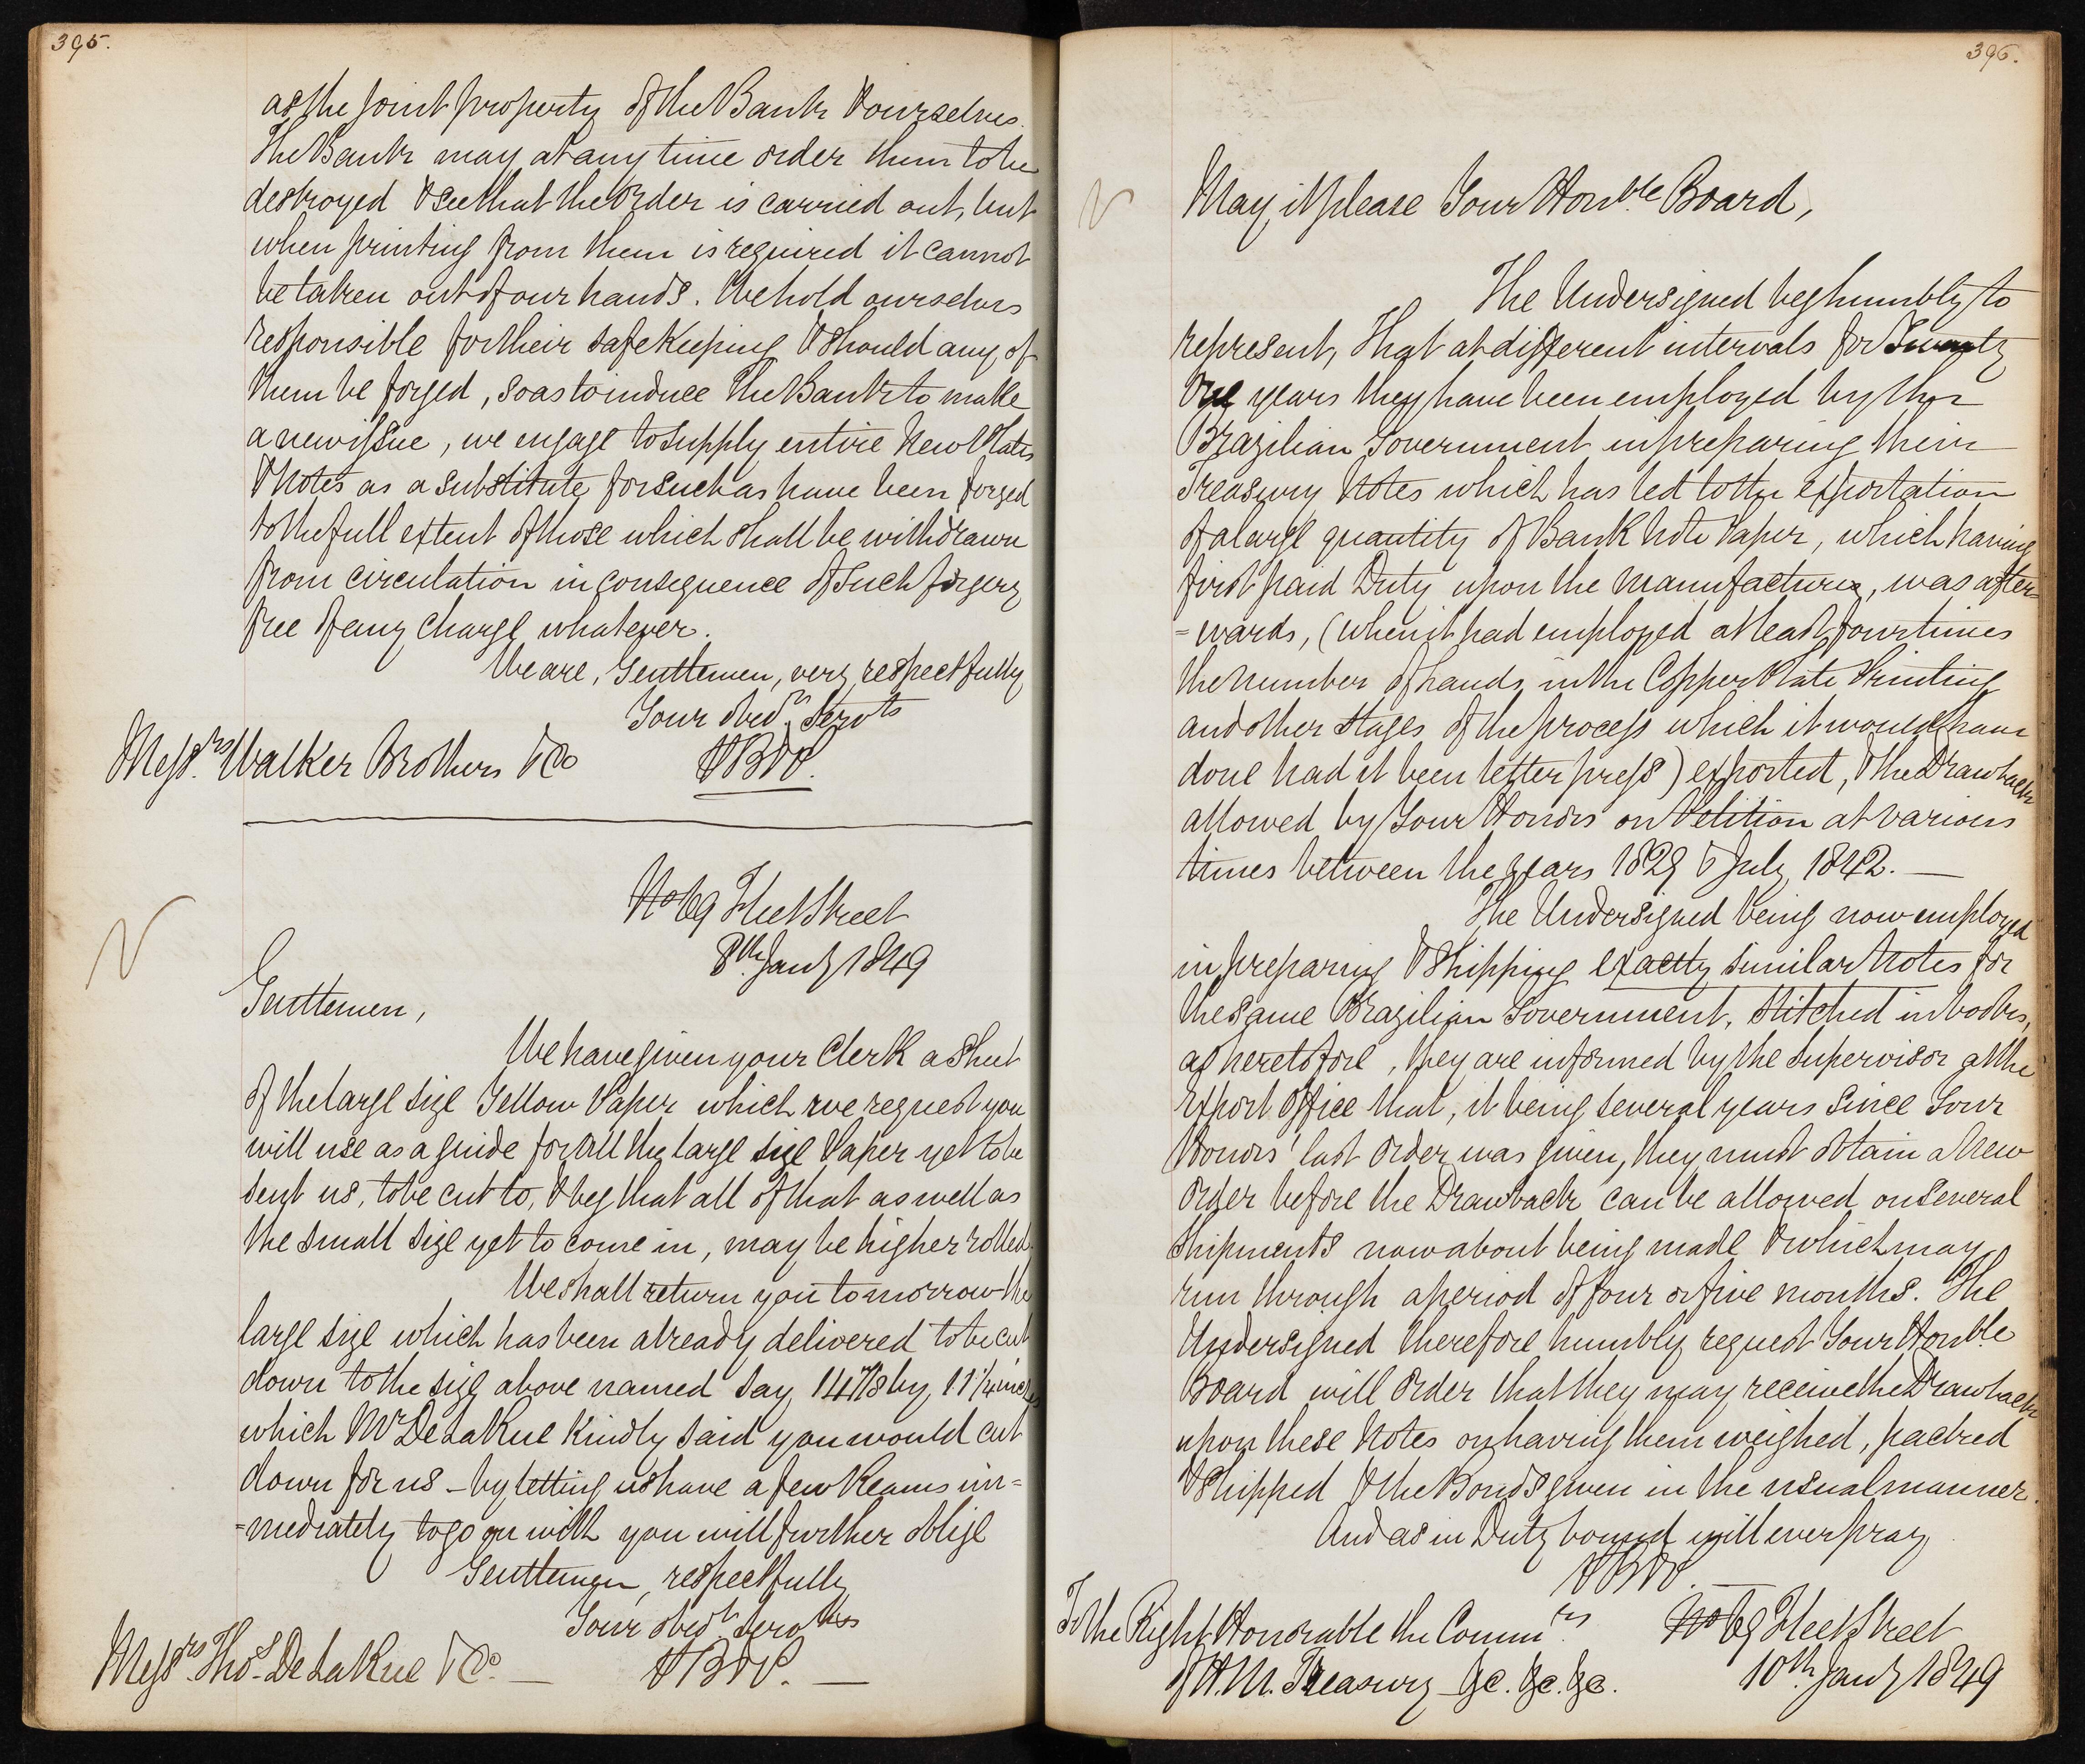 395.
as the joint property of the Bank & ourselves.
The Bank may at any time order them to be
destroyed & see that the order is carried out, but
when printing from them is required it cannot
be taken out of our hands. We hold ourselves
responsible for their safe Keeping & should any of
them be forged, so as to induce the Bank to make
a new issue, we engage to supply entire New Plates
& Notes as a substitute for such as have been forged
to the full extent of those which shall be withdrawn
from circulation in consequence of such forgery
free of any charge whatever.
We are, Gentlemen, very respectfully
Your obed.t Servts
Messrs Walker Brothers & Co
PB&P.
No 69 Fleet Street
8th Jany 1849
Gentlemen,
We have given your Clerk a Sheet
of the large size Yellow Paper which we request you
will use as a guide for all the large size Paper yet to be
sent us, to be cut to, & beg that all of that as well as
the small size yet to come in, may be higher rolled.
We shall return you tomorrow the
large size which has been already delivered to be cut
down to the size above named say 14 7/8 by 11 1/4 inches
which Mr De La Rue kindly said you would cut
down for us – by letting us have a few Reams im=
=mediately to go on with you will further oblige
Gentlemen, respectfully
Your obed.t Servts
Messrs. Thos. De La Rue & Co. —
PB&P. —
396.
May it please Your Honble Board,
The Undersigned beg humbly to
represent, That at different intervals for Twenty
One years they have been employed by the
Brazilian Government in preparing their
Treasury Notes which has led to the exportation
of a large quantity of Bank Note Paper, which having
first paid Duty upon the Manufacture, was after=
=wards, (when it had employed at least four times
the number of hands in the Copper Plate Printing
and other stages of the process which it would have
done had it been letter press) exported, & the Drawback
allowed by Your Honors on Petition at various
times between the years 1829 & July 1842. —
The Undersigned being now employed
in preparing & Shipping exactly similar Notes for
the same Brazilian Government, Stitched in books,
as heretofore, they are informed by the Supervisor at the
Export Office that, it being several years since Your
Honors' last Order was given, they must obtain a New
Order before the Drawback can be allowed on several
Shipments now about being made & which may
run through a period of four or five months. The
Undersigned therefore humbly request Your Honble
Board will Order that they may receive the Drawback
upon these Notes on having them weighed, packed
& Shipped & the Bonds given in the usual manner.
And as in Duty bound will ever pray
PB&P
To the Right Honorable the Commrs
of H. M. Treasury &c. &c. &c.
No 69 Fleet Street
10th Jany 1849